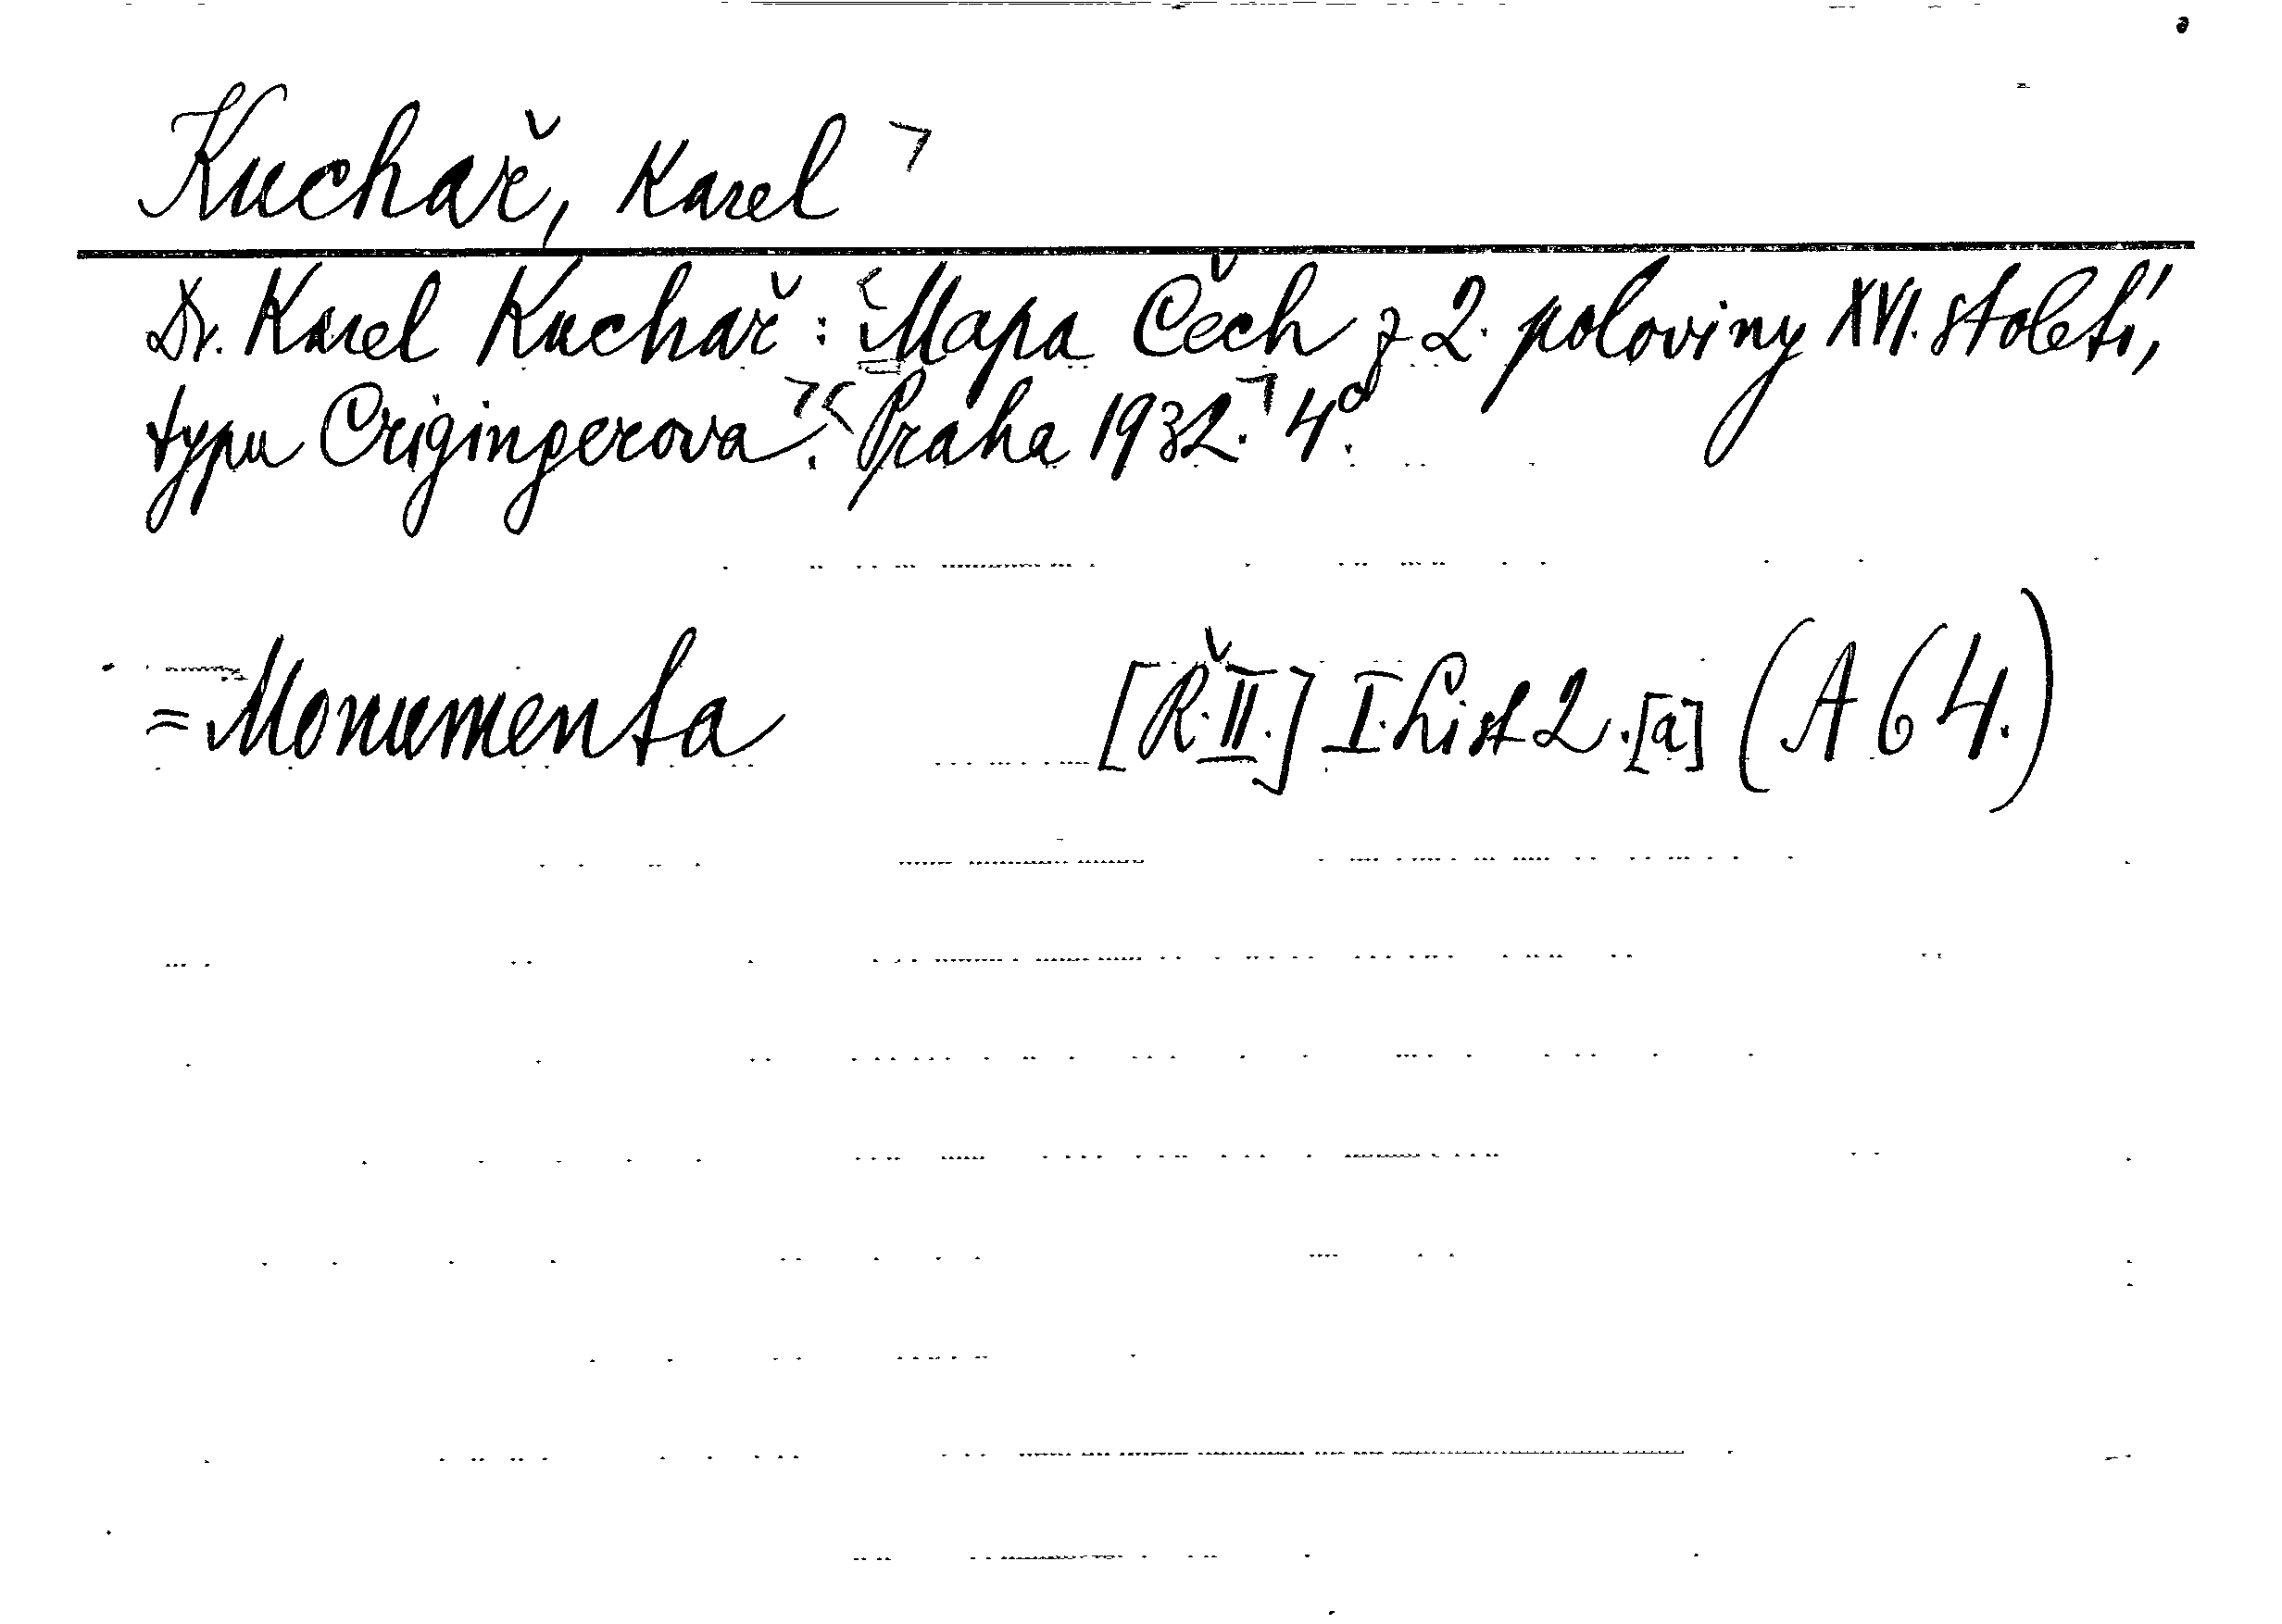 Kuchař, Karel
Dr. Karel Kuchař: Mapa Čech z 2. poloviny XVI. století,
typu Crigingerova. Praha 1932. 4°.
= Monumenta [Ř. II.] I. List 2. [a] (A 64.)